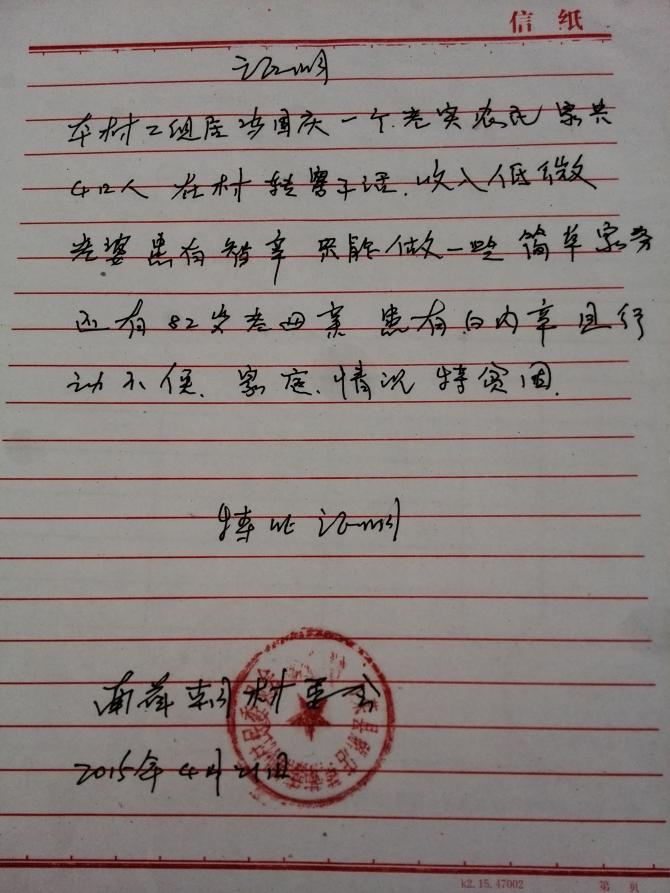 信 纸
证明
本村二组居 国庆一个老实农民 家共
4口人 在村 务生活.收入低微
老婆患有智辛 只能做一些简单家务
还有82岁老母亲 患有白内辛且行
动不便、家庭、情况特贫困.
特此证明
南 村委会
2015年4月21日
k2.15.47002 第 页